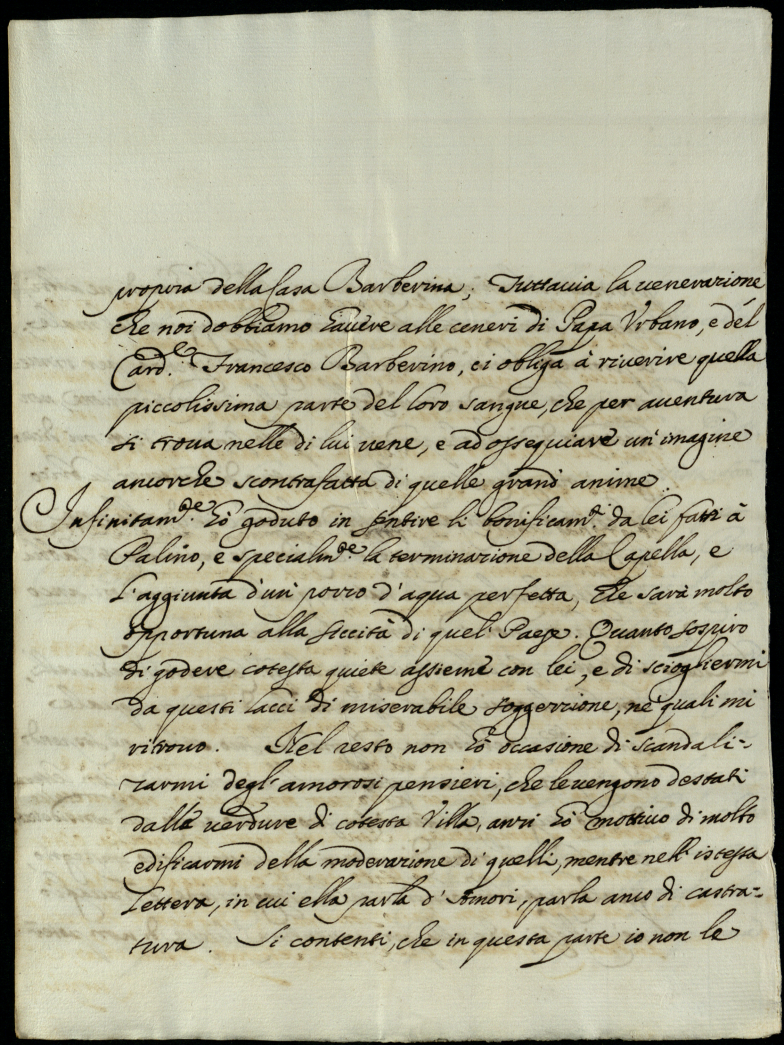 propria della Casa Barberina; Tuttavia la venerazione
che noi dobbiamo havere alle ceneri di Papa Vrbano, e del
Card.le Francesco Barberino, ci obliga à riverire quella
piccolissima parte del loro sangue, che per aventura
si trova nelle di lui vene, e ad ossequiare un'imagine
ancorche scontrafatta di quelle grand'anime.
Infinitam.te hò goduto in sentire li bonificam.ti da lei fatti à
Palino, e specialm.te la terminazione della Capella, e
l'aggiunta d'un pozzo d'aqua perfetta, che sarà molto
opportuna alla siccità di quel Paese. Quanto sospiro
di godere cotesta quiete assieme con lei, e di sciogliermi
da questi lacci di miserabile soggezzione, ne' quali mi
ritrovo. Nel resto non hò occasione di scandali=
zarmi degl'amorosi pensieri, che le vengono destati
dalle verdure di cotesta Villa, anzi hò mottivo di molto
edificarmi della moderazione di quelli, mentre nell'istessa
Lettera, in cui ella parla d'Amori, parla anco di castra=
tura. Si contenti, che in questa parte io non le